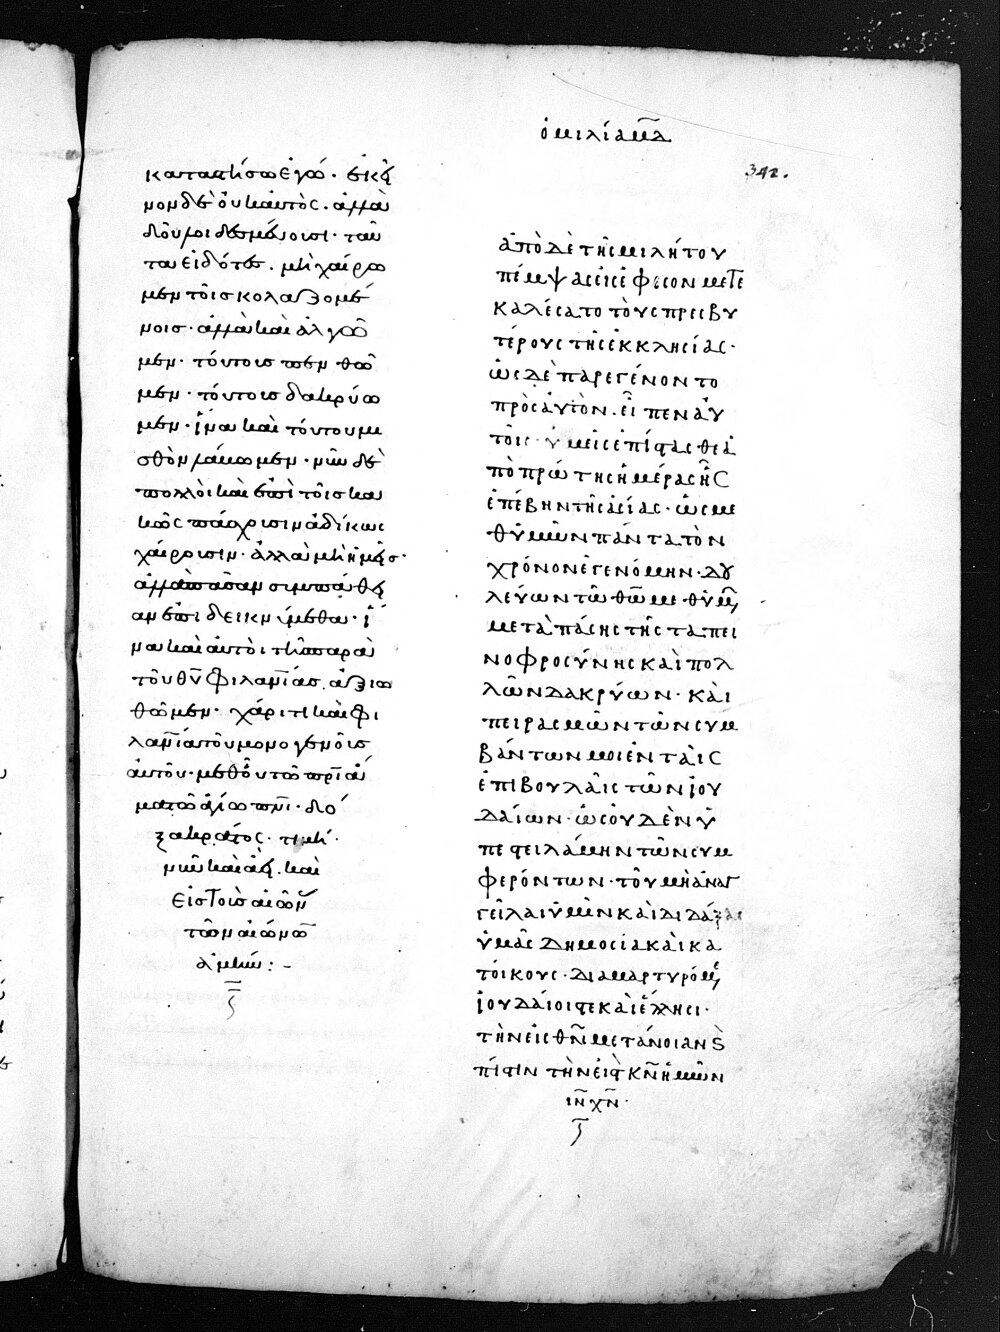 ὁμιλία μ̅δ̅
342.
καταπτήσω ἐγώ · ἐκεῖ
νον δὲ οὐκ αὐτός · ἀλλὰ
δοῦλοι δεσμεύουσι · ταῦ
τα εἰδότες · μὴ χαίρω
μεν τοῖς κολαζομέ
νοις · ἀλλὰ καὶ ἀλγῶ
μεν · τούτοις πενθῶ
μεν · τούτοις δακρύω
μεν · ἵνα καὶ τούτου μι
σθὸν λάβωμεν · νῦν δὲ
πολλοὶ καὶ ἐπὶ τοῖς κα
κῶς πάσχουσιν ἀδίκως
χαίρουσιν · ἀλλὰ μὴ ἡμεῖς ·
ἀλλὰ πᾶσαν συμπάθει
αν ἐπιδεικνύμεθα · ἵ
να καὶ αὐτοὶ τῆς παρὰ
τοῦ θῦ φιλανίας ἀξιω
θῶμεν · χάριτι καὶ φι
λανία τοῦ μονογενοῦς
αὐτοῦ · μεθ οὗ τῶ πρὶ ἅ
μα τῶ ἁγίω πνι · δό
ξα κράτος · τιμή ·
νῦν καὶ ἀεὶ · καὶ
εἰς τοὺς αἰῶν
τῶν αἰώνω
ἀμήν : -
ἀπὸ δὲ τῆς μιλήτου
πέμψας εἰς ἔφεσον μετε
καλέσατο τοὺς πρεσβυ
τέρους τῆς ἐκκλησίας ·
ὡς δὲ παρεγένοντο
πρὸς αὐτὸν · εἶπεν αὐ
τοῖς · ὑμεῖς ἐπίστασθε ἀ
πὸ πρώτης ἡμέρας ἧς
ἐπέβην τῆς ἀσίας · ὡς με
θ ὑμῶν πάντα τὸν
χρόνον ἐγενόμην · δου
λεύων τῶ θῶ μεθ ὑμ
μετὰ πάσης τῆς ταπει
νοφροσύνης καὶ πολ
λῶν δακρύων · καὶ
πειρασμῶν τῶν συμ
βάντων μοι ἐν ταῖς
ἐπιβουλαῖς τῶν ἰου
δαίων · ὡς οὐδὲν ὑ
πεστειλάμην τῶν συμ
φερόντων · τοῦ μὴ ἀναγ
γεῖλαι ὑμῖν καὶ διδάξαι
ὑμᾶς δημοσία καὶ κα
τοίκους · διαμαρτυρόμε
ἰουδαίοις τε καὶ ἕλλησι ·
τὴν εἰς θν μετάνοιαν ϗ
πίστιν τὴν εἰς τ κν ἡμῶν
ιν χν ·